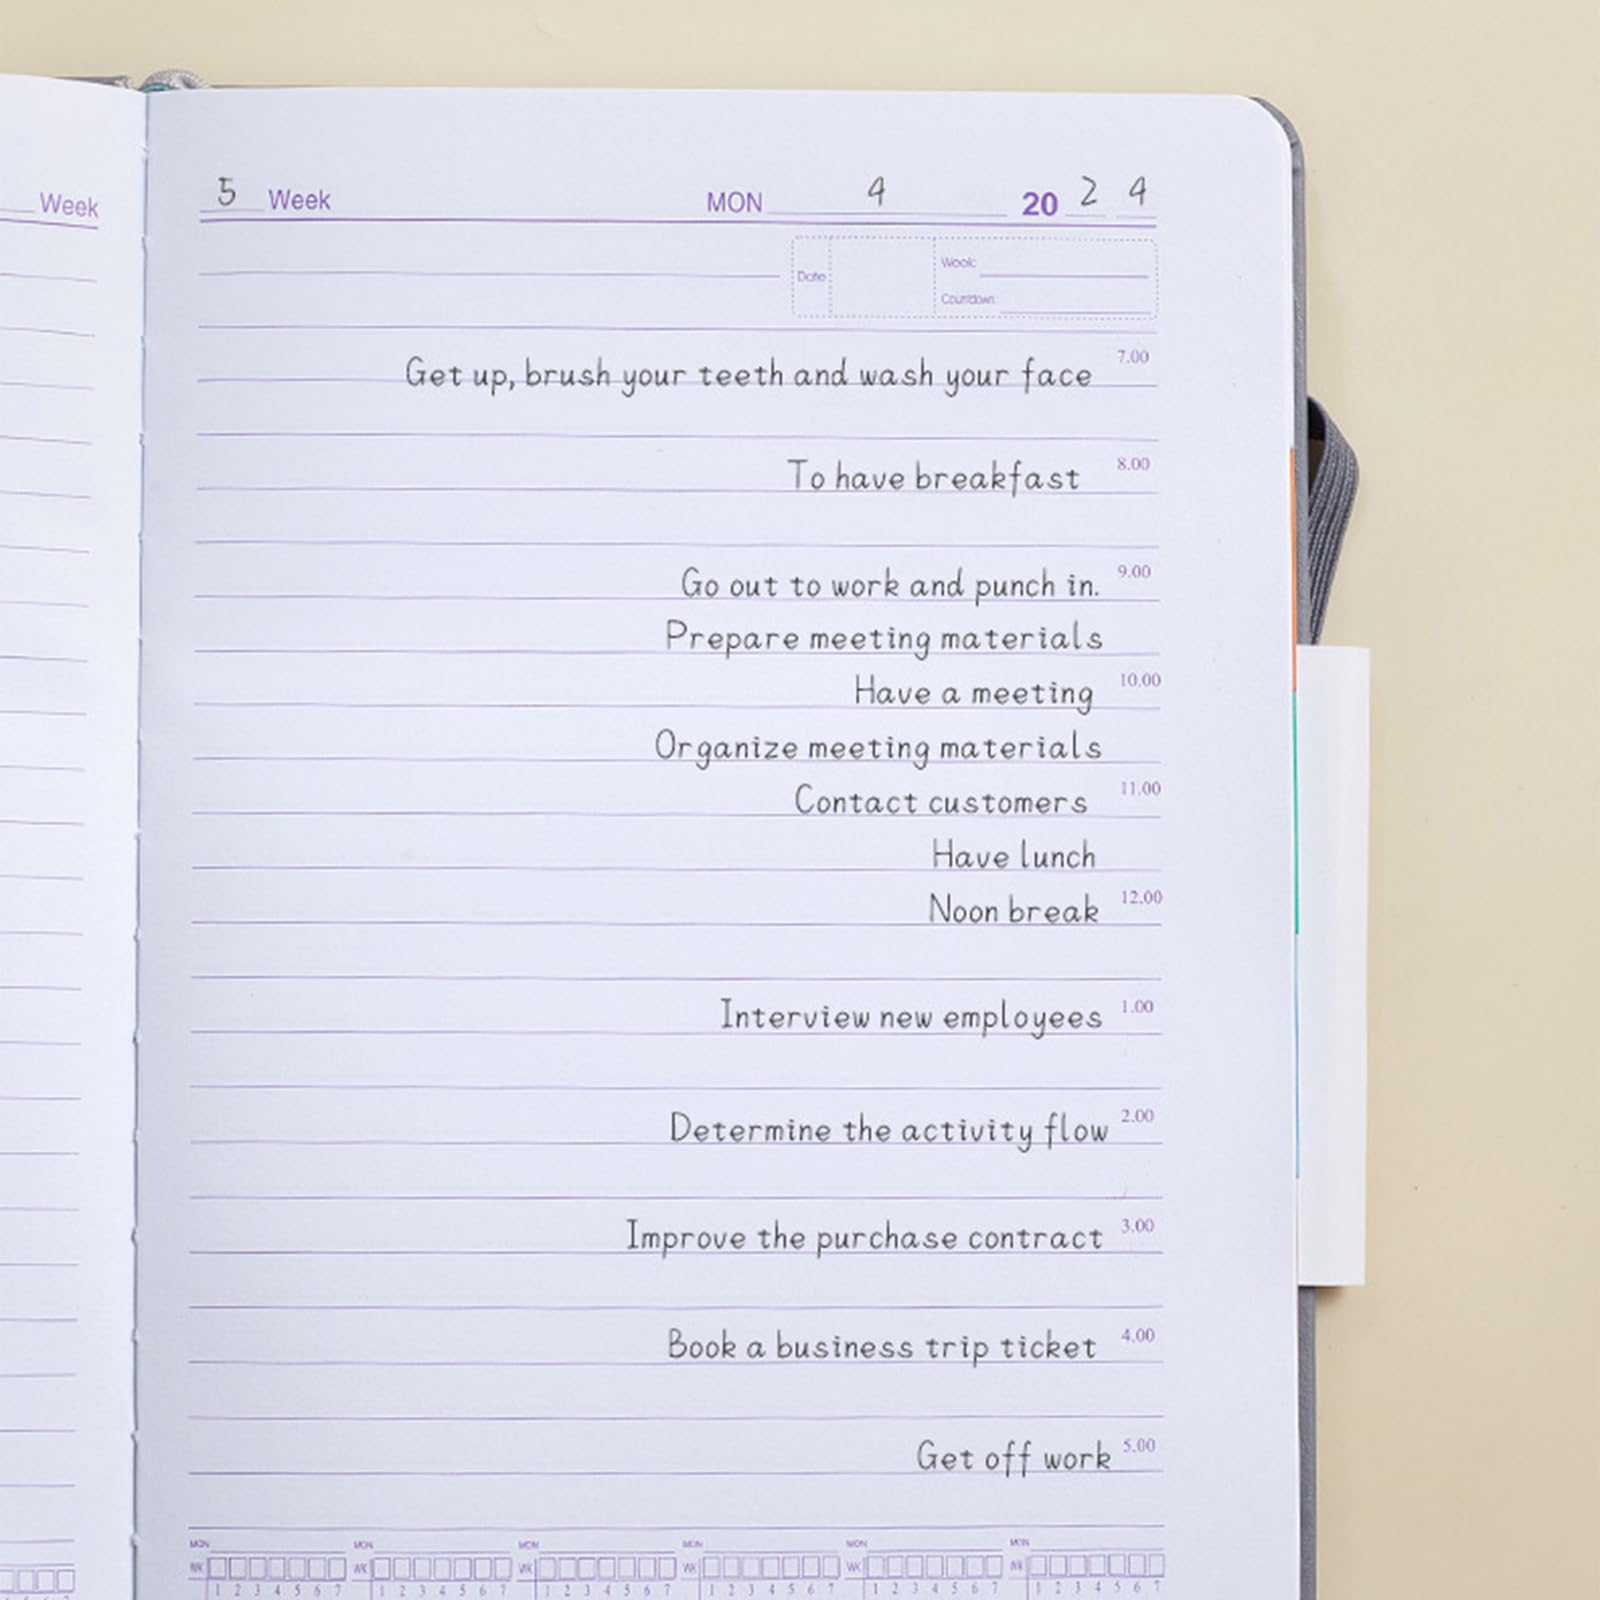 Week
5 Week MON 4 20 2 4
Date Week:
Countdown:
7.00
Get up, brush your teeth and wash your face
8.00
To have breakfast
9.00
Go out to work and punch in.
Prepare meeting materials
10.00
Have a meeting
Organize meeting materials
11.00
Contact customers
Have lunch
12.00
Noon break
1.00
Interview new employees
2.00
Determine the activity flow
3.00
Improve the purchase contract
4.00
Book a business trip ticket
5.00
Get off work
MON MON MON MON MON MON
WK WK WK WK WK WK
1 2 3 4 5 6 7 1 2 3 4 5 6 7 1 2 3 4 5 6 7 1 2 3 4 5 6 7 1 2 3 4 5 6 7 1 2 3 4 5 6 7